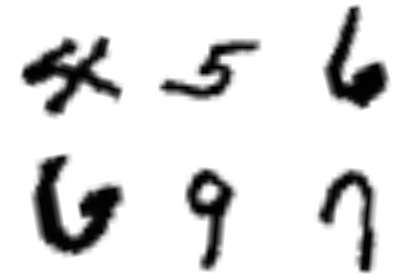 4 5 6
6 9 7